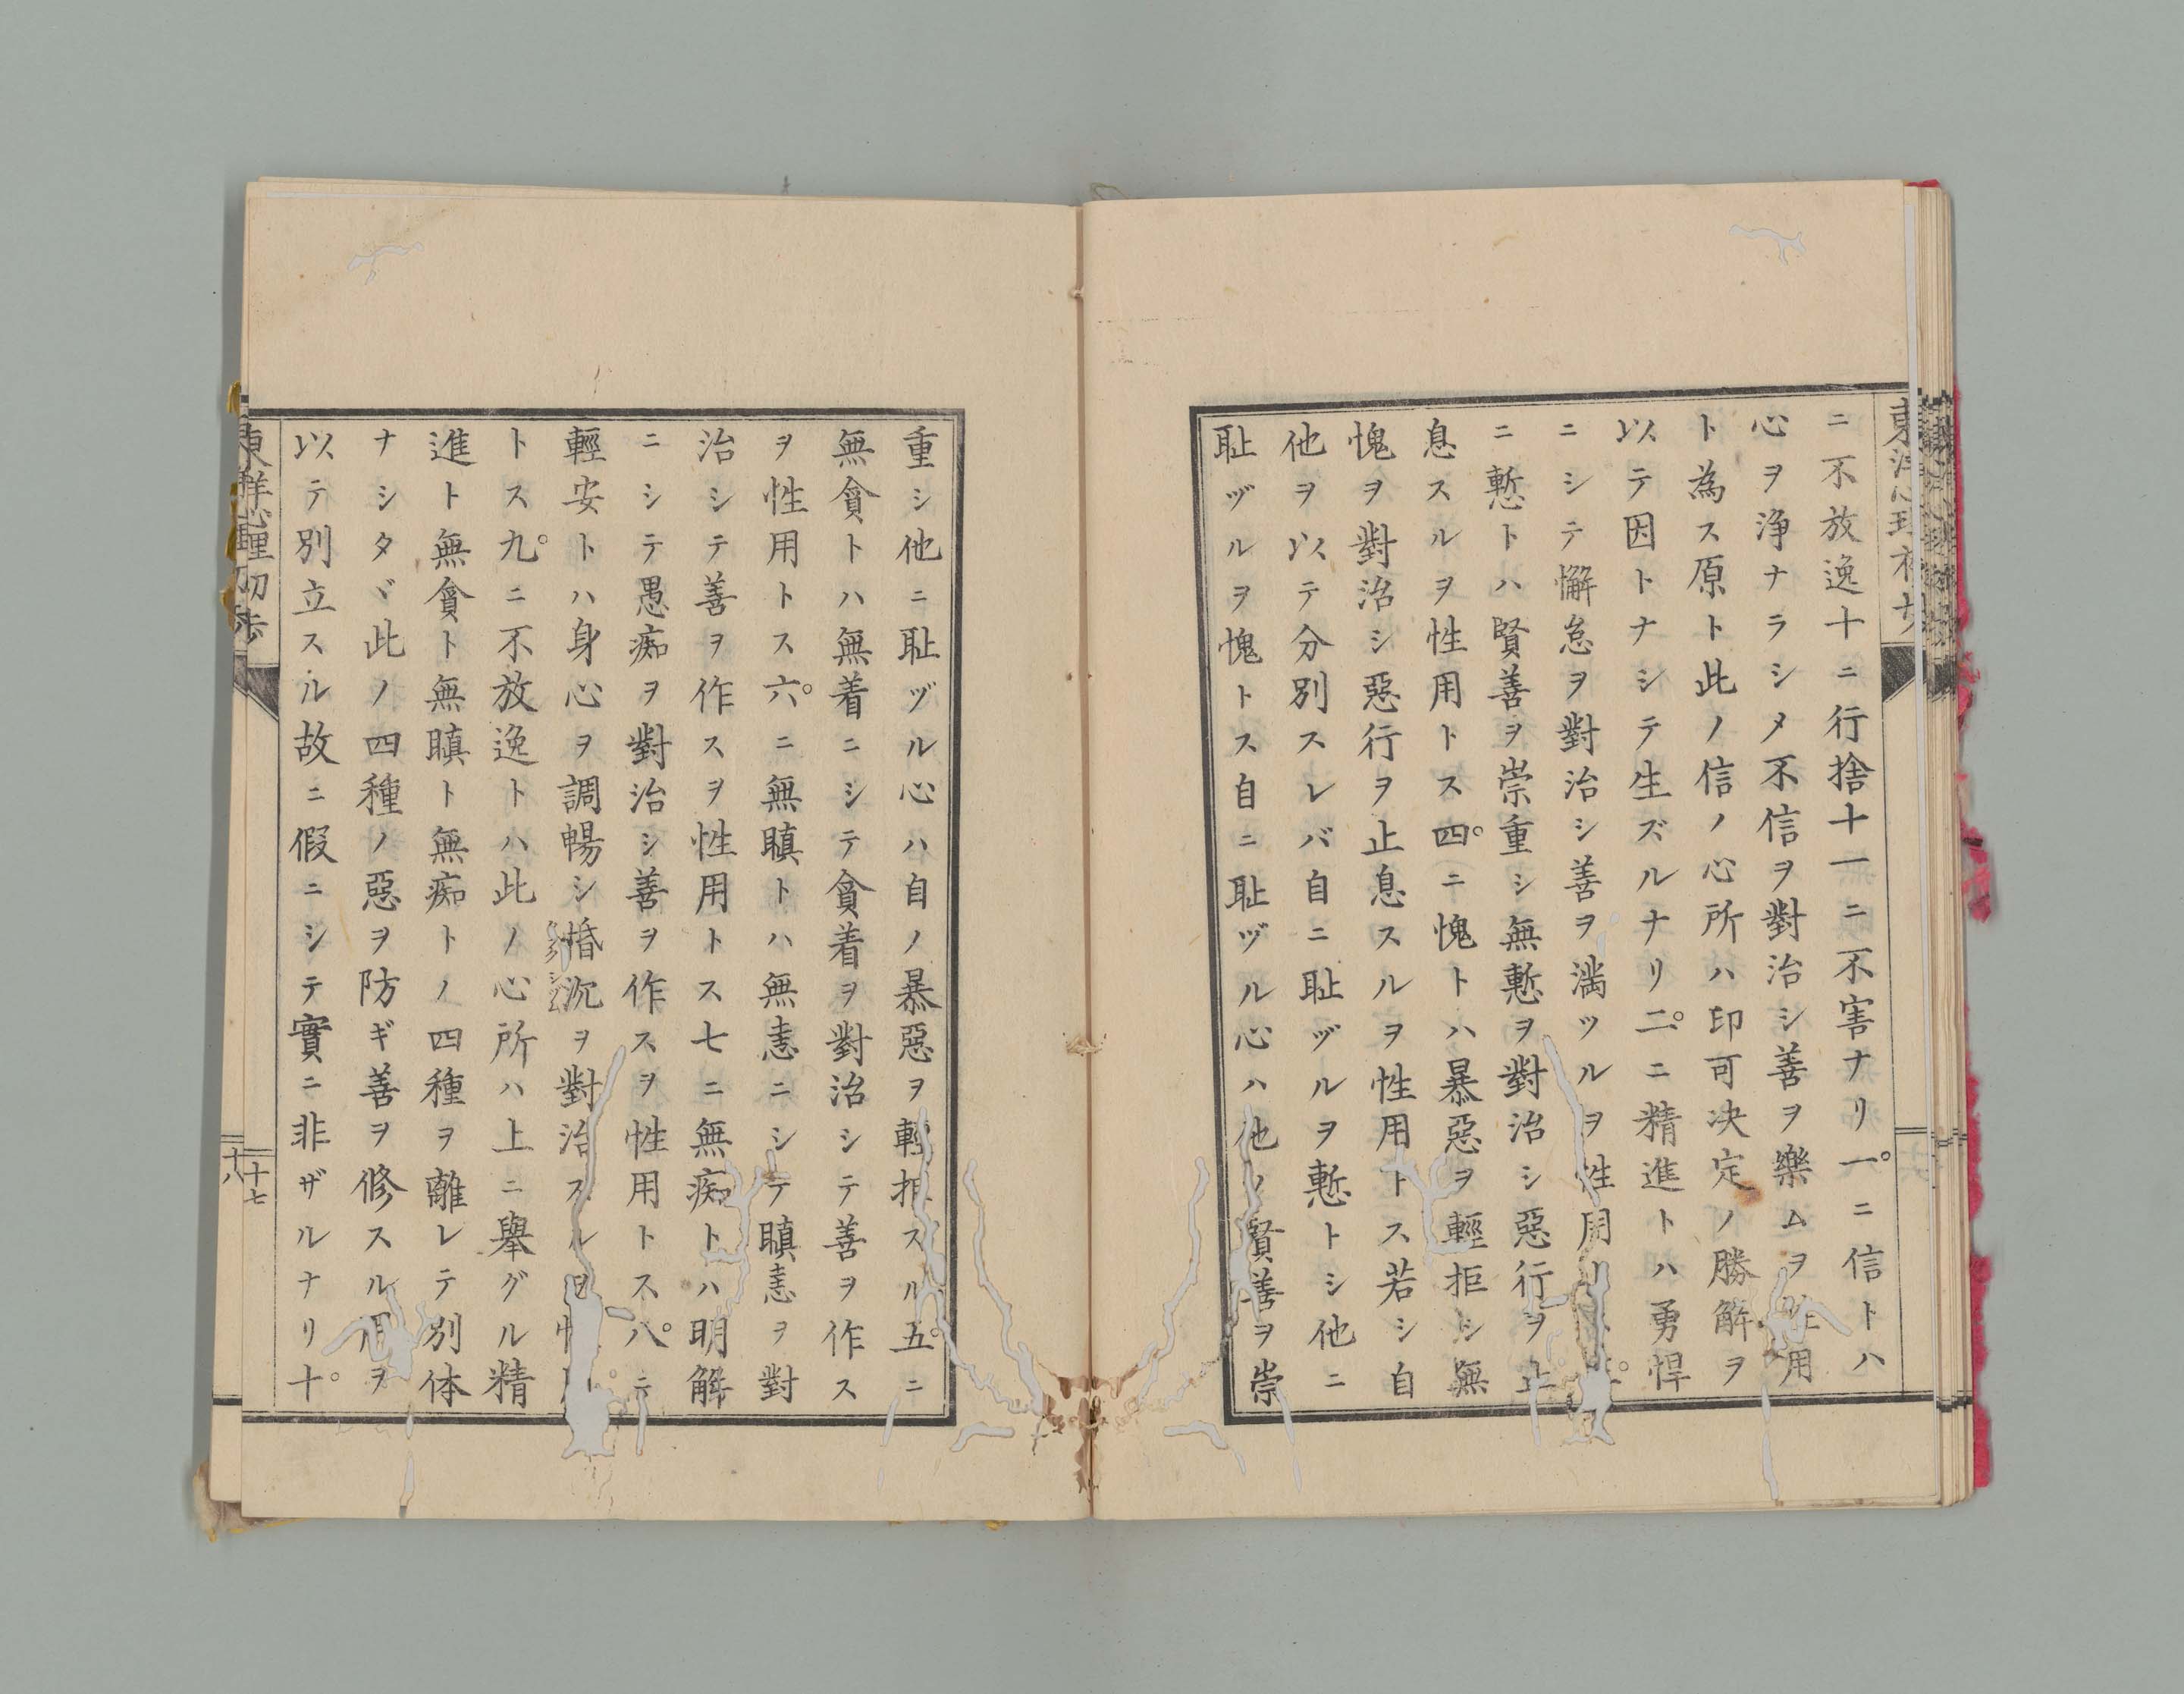 ニ不放逸十ニ行捨十一ニ不害ナリ一。ニ信トハ
心ヲ浄ナラシメ不信ヲ對治シ善ヲ樂ムヲ用
ト為ス原ト此ノ信ノ心所ハ印可决定ノ勝解ヲ
以テ因トナシテ生ズルナリ二。ニ精進トハ勇悍
ニシテ懈怠ヲ對治シ善ヲ満ツルヲ性用
ニ慙トハ賢善ヲ崇重シ無慙ヲ對治シ惡行ヲ止
息スルヲ性用トス四。ニ愧トハ暴惡ヲ輕拒シ無
愧ヲ對治シ惡行ヲ止息スルヲ性用トス若シ自
他ヲ以テ分別スレバ自ニ耻ヅルヲ慙トシ他ニ
耻ヅルヲ愧トス自ニ耻ヅル心ハ他ノ賢善ヲ崇
重シ他ニ耻ヅル心ハ自ノ暴惡ヲ輕拒スル五。ニ
無貪トハ無着ニシテ貪着ヲ對治シテ善ヲ作ス
ヲ性用トス六。ニ無瞋トハ無恚ニシテ瞋恚ヲ對
治シテ善ヲ作スヲ性用トス七ニ無痴トハ明解
ニシテ愚痴ヲ對治シ善ヲ作スヲ性用トス八。ニ
輕安トハ身心ヲ調暢シ惛沉ヲ對治スルヲ
トス九。ニ不放逸トハ此ノ心所ハ上ニ擧グル精
進ト無貪ト無瞋ト無痴トノ四種ヲ離レテ別体
ナシタヾ此ノ四種ノ惡ヲ防ギ善ヲ修スル用ヲ
以テ別立スル故ニ假ニシテ實ニ非ザルナリ十。
東洋心理初歩
十七
十八